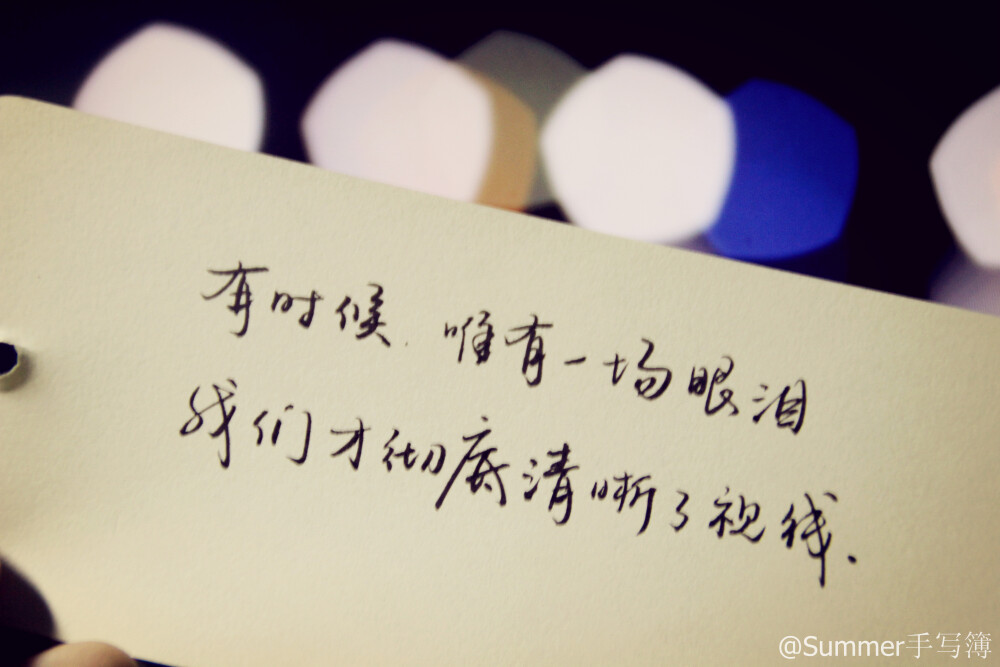 有时候.唯有一场眼泪
我们才彻底清晰了视线.
@Summer手写簿